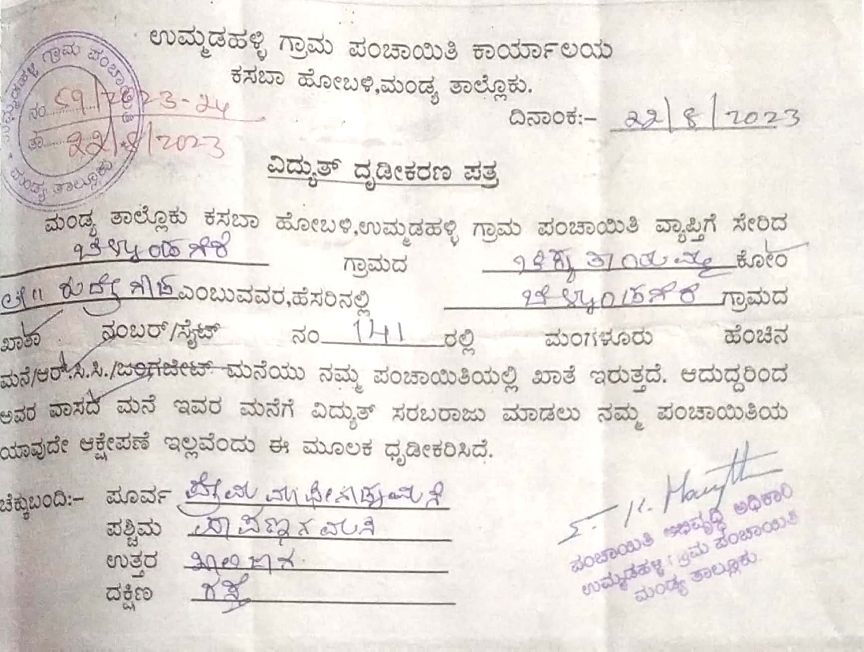 ಉಮ್ಮಡಹಳ್ಳಿ ಗ್ರಾಮ ಪಂಚಾಯಿತಿ ಕಾರ್ಯಾಲಯ
ಕಸಬಾ ಹೋಬಳಿ,ಮಂಡ್ಯ ತಾಲ್ಲೊಕು.
ನಂ 59/2023-24
ತಾ 22/8/2023
ಮಂಡ್ಯ ತಾಲ್ಲೂಕು
ದಿನಾಂಕ:- 22/8/2023
ವಿದ್ಯುತ್ ದೃಡೀಕರಣ ಪತ್ರ
ಮಂಡ್ಯ ತಾಲ್ಲೊಕು ಕಸಬಾ ಹೋಬಳಿ,ಉಮ್ಮಡಹಳ್ಳಿ ಗ್ರಾಮ ಪಂಚಾಯಿತಿ ವ್ಯಾಪ್ತಿಗೆ ಸೇರಿದ
ಚಿಕ್ಕಮಂಡಗೆರೆ ಗ್ರಾಮದ ಕೋಂ
ಎಂಬುವವರ,ಹೆಸರಿನಲ್ಲಿ ಗ್ರಾಮದ
ಖಾತಾ ನಂಬರ್/ಸೈಟ್ ನಂ 141 ರಲ್ಲಿ ಮಂಗಳೂರು ಹೆಂಚಿನ
ಮನೆ/ಆರ್.ಸಿ.ಸಿ./ಜಂಗಜೀಟ್ ಮನೆಯು ನಮ್ಮ ಪಂಚಾಯಿತಿಯಲ್ಲಿ ಖಾತೆ ಇರುತ್ತದೆ. ಆದುದ್ದರಿಂದ
ಅವರ ವಾಸದ ಮನೆ ಇವರ ಮನೆಗೆ ವಿದ್ಯುತ್ ಸರಬರಾಜು ಮಾಡಲು ನಮ್ಮ ಪಂಚಾಯಿತಿಯ
ಯಾವುದೇ ಆಕ್ಷೇಪಣೆ ಇಲ್ಲವೆಂದು ಈ ಮೂಲಕ ಧೃಡೀಕರಿಸಿದೆ.
ಚೆಕ್ಕುಬಂದಿ:- ಪೂರ್ವ
ಪಶ್ಚಿಮ
ಉತ್ತರ
ದಕ್ಷಿಣ ರಸ್ತೆ
ಪಂಚಾಯಿತಿ ಅಭಿವೃದ್ಧಿ ಅಧಿಕಾರಿ
ಉಮ್ಮಡಹಳ್ಳಿ ಗ್ರಾಮ ಪಂಚಾಯಿತಿ
ಮಂಡ್ಯ ತಾಲ್ಲೂಕು.